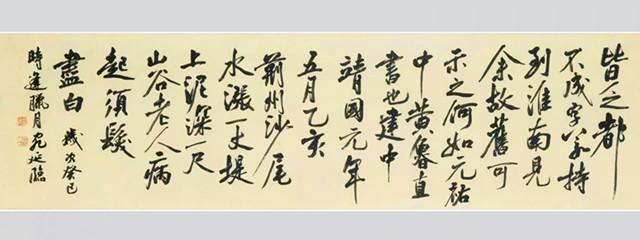 皆乏都
不成字若持
到淮南見
余故舊可
示之何如元祐
中黃魯直
書也建中
靖國元年
五月乙亥
荊州沙尾
水漲一丈堤
上泥深一尺
山谷老人病
起須髮
盡白 歲次癸巳
時逢臘月 臨